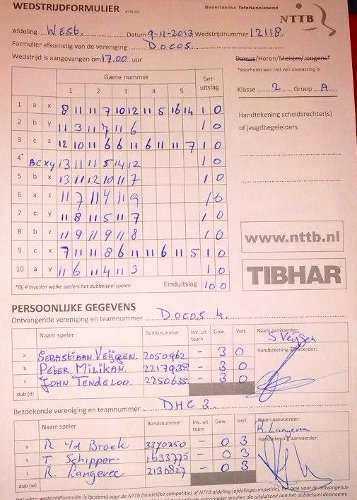 WEDSTRIJDFORMULIER
Nederlandse Tafeltennisbond
NTTB
Afdeling West Datum 9-11-2013 Wedstrijdnummer 12118
Formulier afkomstig van de vereniging Docos
Wedstrijd is aangevangen om 17.00 uur
Dames/Heren/Meisjes/Jongens*
Klasse 2 Groep A
Handtekening scheidsrechter(s) of jeugdbegeleider
Game nummer
Set uitslag
1 2 3 4 5
1 a x 8 11 11 7 10 12 11 5 16 14 1 0
2 b y 11 3 11 7 11 6 1 0
3 c z 12 10 11 6 6 11 6 11 11 7 1 0
4* BC xy 13 11 11 5 14 12 1 0
5 b x 13 11 12 10 11 7 1 0
6 a z 11 7 11 4 11 9 1 0
7 c y 11 8 11 5 11 7 1 0
8 b z 11 9 11 9 11 8 1 0
9 c x 7 11 11 8 6 11 11 6 11 5 1 0
10 a y 11 6 11 4 11 3 1 0
Einduitslag 10 0
www.nttb.nl
TIBHAR
PERSOONLIJKE GEGEVENS
Ontvangende vereniging en teamnummer Docos 4
Naam speler Bondsnummer Inv. uit team Gew. Verl.
Naam aanvoerder:
Handtekening aanvoerder:
a Sebastiaan Veijgen 2050962 - 3 0
b Peter Milikan 2217938 - 3 0
c John Tendeloo 2250635 - 3 0
dub (d)
Bezoekende vereniging en teamnummer DHC 3
Naam speler Bondsnummer Inv. uit team Gew. Verl.
Naam aanvoerder:
R. Langeree
x R v/d Broek - 0 3
y T Schipper 1633725 - 0 3
z R Langeree 2130827 - 0 3
dub (d)